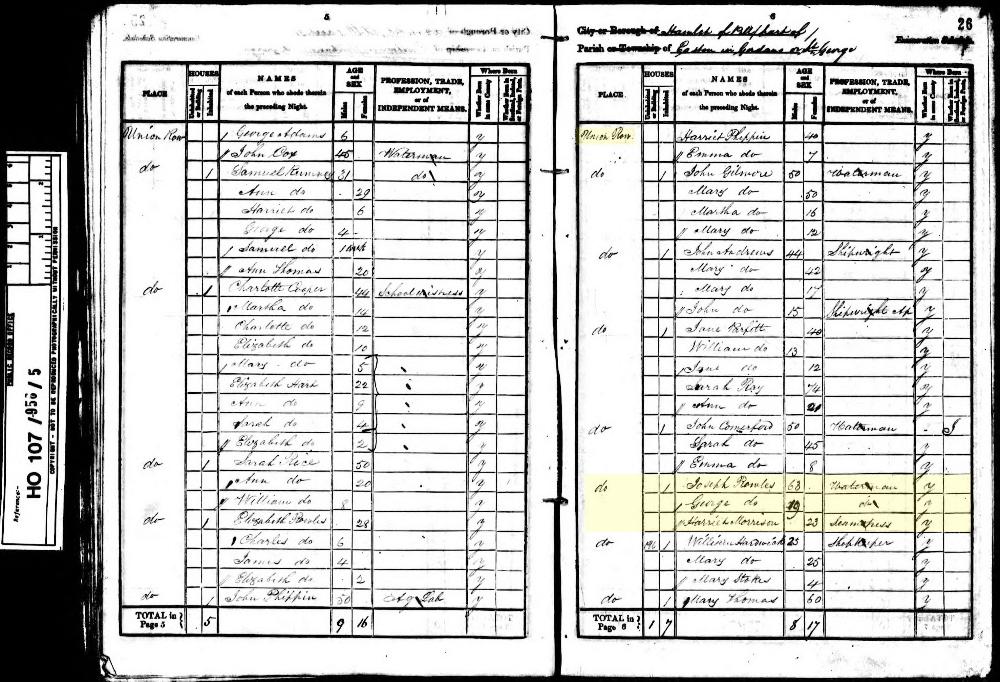 5
PLACE
HOUSES
Uninhabited or Building
Inhabited
NAMES
of each Person who abode therein the preceding Night.
AGE and SEX
Males
Females
PROFESSION, TRADE, EMPLOYMENT, or of INDEPENDENT MEANS.
Where Born
Whether Born in same County
Whether Born in Scotland, Ireland, or Foreign Parts.
Union Row George Adams 6 y
John Cox 45 Waterman y
do 1 Samuel 31 do y
Ann do 29 y
Harriet do 6 y
George do 4 y
Samuel do y
Ann Thomas 20 y
do 1 Charlotte Cooper 44 School Mistress y
Martha do 14 y
Charlotte do 12 y
Elizabeth do 10 y
Mary do 5 y
Elizabeth Hart 22 y
Ann do 9 y
Sarah do 4 y
Elizabeth do 2 y
do 1 Sarah Rice 50 y
Ann do 20 y
William do 8 y
do 1 Elizabeth Rowles 28 y
Charles do 6 y
James do 4 y
Elizabeth do 2 y
do 1 John Phippin 50 Ag Lab y
TOTAL in Page 5 } 5 9 16
6
26
City or Borough of Hamlet of
Parish or Township of Easton in Gordano St George
Enumeration Schedule
PLACE
HOUSES
Uninhabited or Building
Inhabited
NAMES
of each Person who abode therein the preceding Night.
AGE and SEX
Males
Females
PROFESSION, TRADE, EMPLOYMENT, or of INDEPENDENT MEANS.
Where Born
Whether Born in same County
Whether Born in Scotland, Ireland, or Foreign Parts.
Union Row Harriet Phippin 40 y
Emma do 7 y
do 1 John Gilmore 50 Waterman y
Mary do 50 y
Martha do 16 y
Mary do 12 y
do 1 John Andrews 44 Shipwright y
Mary do 42 y
Mary do 17 y
John do 15 Shipwright Ap y
do 1 Jane Parfitt 40 y
William do 13 y
Jane do 12 y
Sarah Ray 74 y
Ann do 21 y
do 1 John Comerford 50 Waterman - I
Sarah do 45 y
Emma do 8 y
do 1 Joseph Rowles 63 Waterman y
George do 19 do y
Harriet Morrison 23 Seamstress y
do 1 William Hardwick 25 Shopkeeper y
Mary do 25 y
Mary Stokes 4 y
do 1 Mary Thomas 60 y
TOTAL in Page 6 } 1 7 8 17
PUBLIC RECORD OFFICE
Reference:-
HO 107 / 956 / 5
COPYRIGHT - NOT TO BE REPRODUCED PHOTOGRAPHICALLY WITHOUT PERMISSION